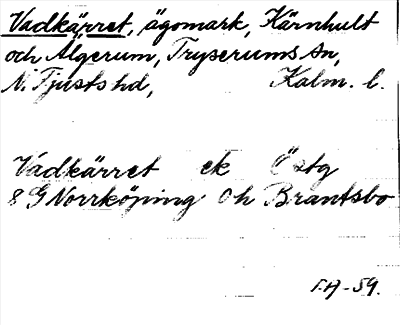 Vadkärret, ägomark, Kärnhult
och Älgerum, Tryserums sn,
N. Tjusts hd, Kalm. l.
Vadkärret ek Östg
8 G Norrköping 0h Brantsbo
T.A-59.